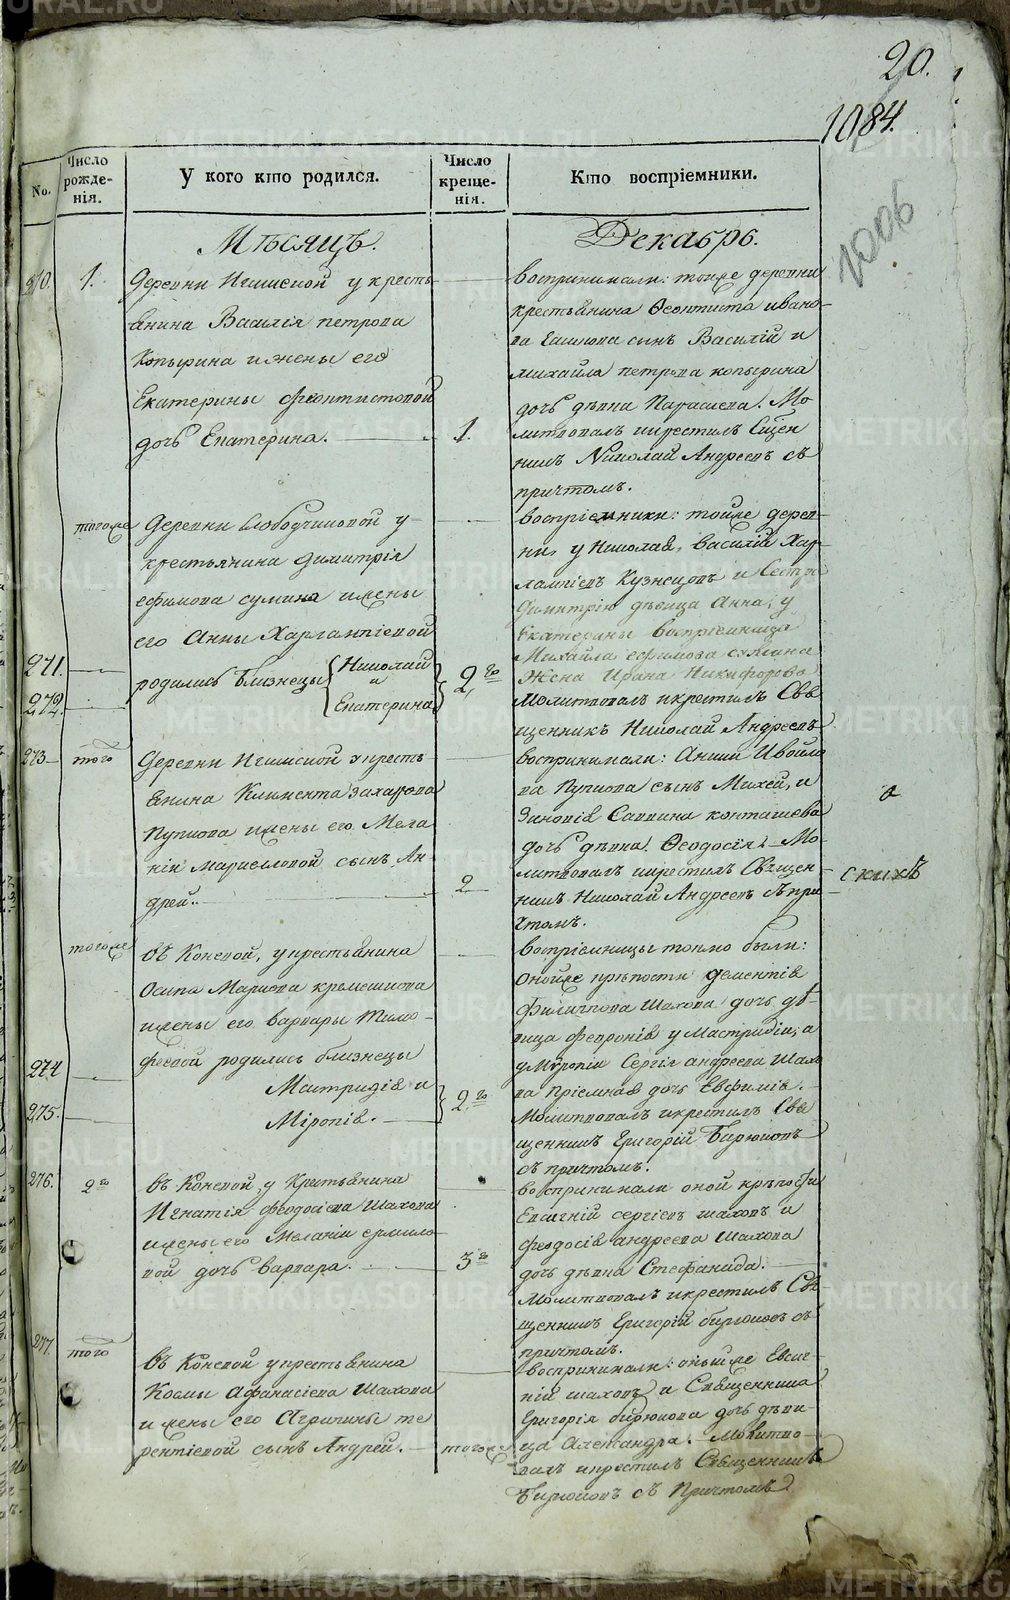 20.
1084.
1006
No.
Число рожденія.
У кого кто родился.
Число крещенія.
Кто воспріемники.
Мѣсяцъ.
Декабрь.
270. 1.
Деревни у кресть
янина Василія петрова
Копырина и жены его
Екатерины феоктистовой
дочь Екатерина. 1.
воспринимали: тойже деревни
крестьянина Ѳеоктиста ивано-
ва сынъ Василій и
михайла петрова копырина
дочь дѣвка Параскева. Мо
литвовалъ икрестилъ Сщен
никъ Николай Андреевъ съ
причтомъ.
тогоже
Деревни Слободчиковой у
крестьянина Димитрія
ефимова сумина ижены
его Анны Харлампіевой
271.
272.
родились близнецы Николай
и
Екатерина 2го
воспріемники: тойже дерев-
ни, у Николая, Василій Хар-
лампіевъ Кузнецовъ и Сестра
Димитрію дѣвица Анна; у
Екатерины воспріемница
Михайла ефимова сумина
Жена Ирина Никифорова
Молитвовалъ икрестилъ Свя
щенникъ Николай Андреевъ
273 того
Деревни у кресть
янина Климента захарова
Пупкова ижены его Мела
ніи сынъ Ан
дрей. 2
воспринимали:
Пупкова сынъ Михей, и
Зиновія Саввина
дочь дѣвка Ѳеодосія. Мо-
литвовалъ икрестилъ Священ-
никъ Николай Андреевъ съ при
чтомъ.
скихъ
тогоже
въ Коневой, укрестьянина
Осипа Маркова кремешкова
ижены его варвары Тимо-
феевой родились близнецы
274
Мастридія и
275.
Міропія. 2го
воспріемницы токмо были:
Онойже крѣпости дементія
Филиппова Шахова дочь дѣ-
вица февронія у Мастридіи, а
у Міропіи Сергія андреева Шахо
ва пріемная дочь Евфимія.
Молитвовалъ икрестилъ Свя
щенникъ Григорій Бирюковъ
съ причтомъ.
276. 2го
въ Коневой, у Крестьянина
Игнатія феодосіева Шахова
ижены его Меланіи ермило
вой дочь варвара. 3го
воспринимали оной крѣпости
Евсигній сергіевъ шаховъ и
феодосія андреева Шахова
дочь дѣвка Стефанида.
Молитвовалъ икрестилъ Свя
щенникъ Григорій бирюковъ съ
причтомъ.
277. того
въ Коневой укрестьянина
Космы Афанасіева Шахова
и жены его Агрипины те
рентіевой сынъ Андрей. тогоже
воспринимали: Евсиг-
ній шаховъ и Священника
Григорія бирюкова дочь дѣви-
ца Александра. Молитво-
валъ икрестилъ Священникъ
Бирюковъ съ Причтомъ